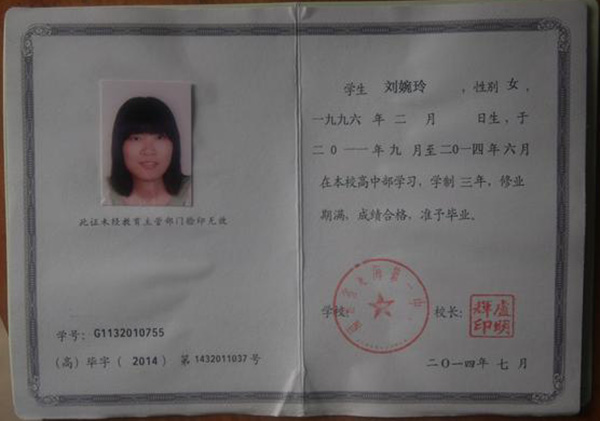 此证未经教育主管部门验印无效
学号：G1132010755
（高）毕字（ 2014 ）第 1432011037 号
学生 刘婉玲 ，性别 女，
一九九六 年 二 月 日生，于
二〇一一年 九 月至 二〇一四年 六 月
在本校高中部学习，学制 三年，修业
期满，成绩合格，准予毕业。
学校： 校长：
二〇一四年 七 月